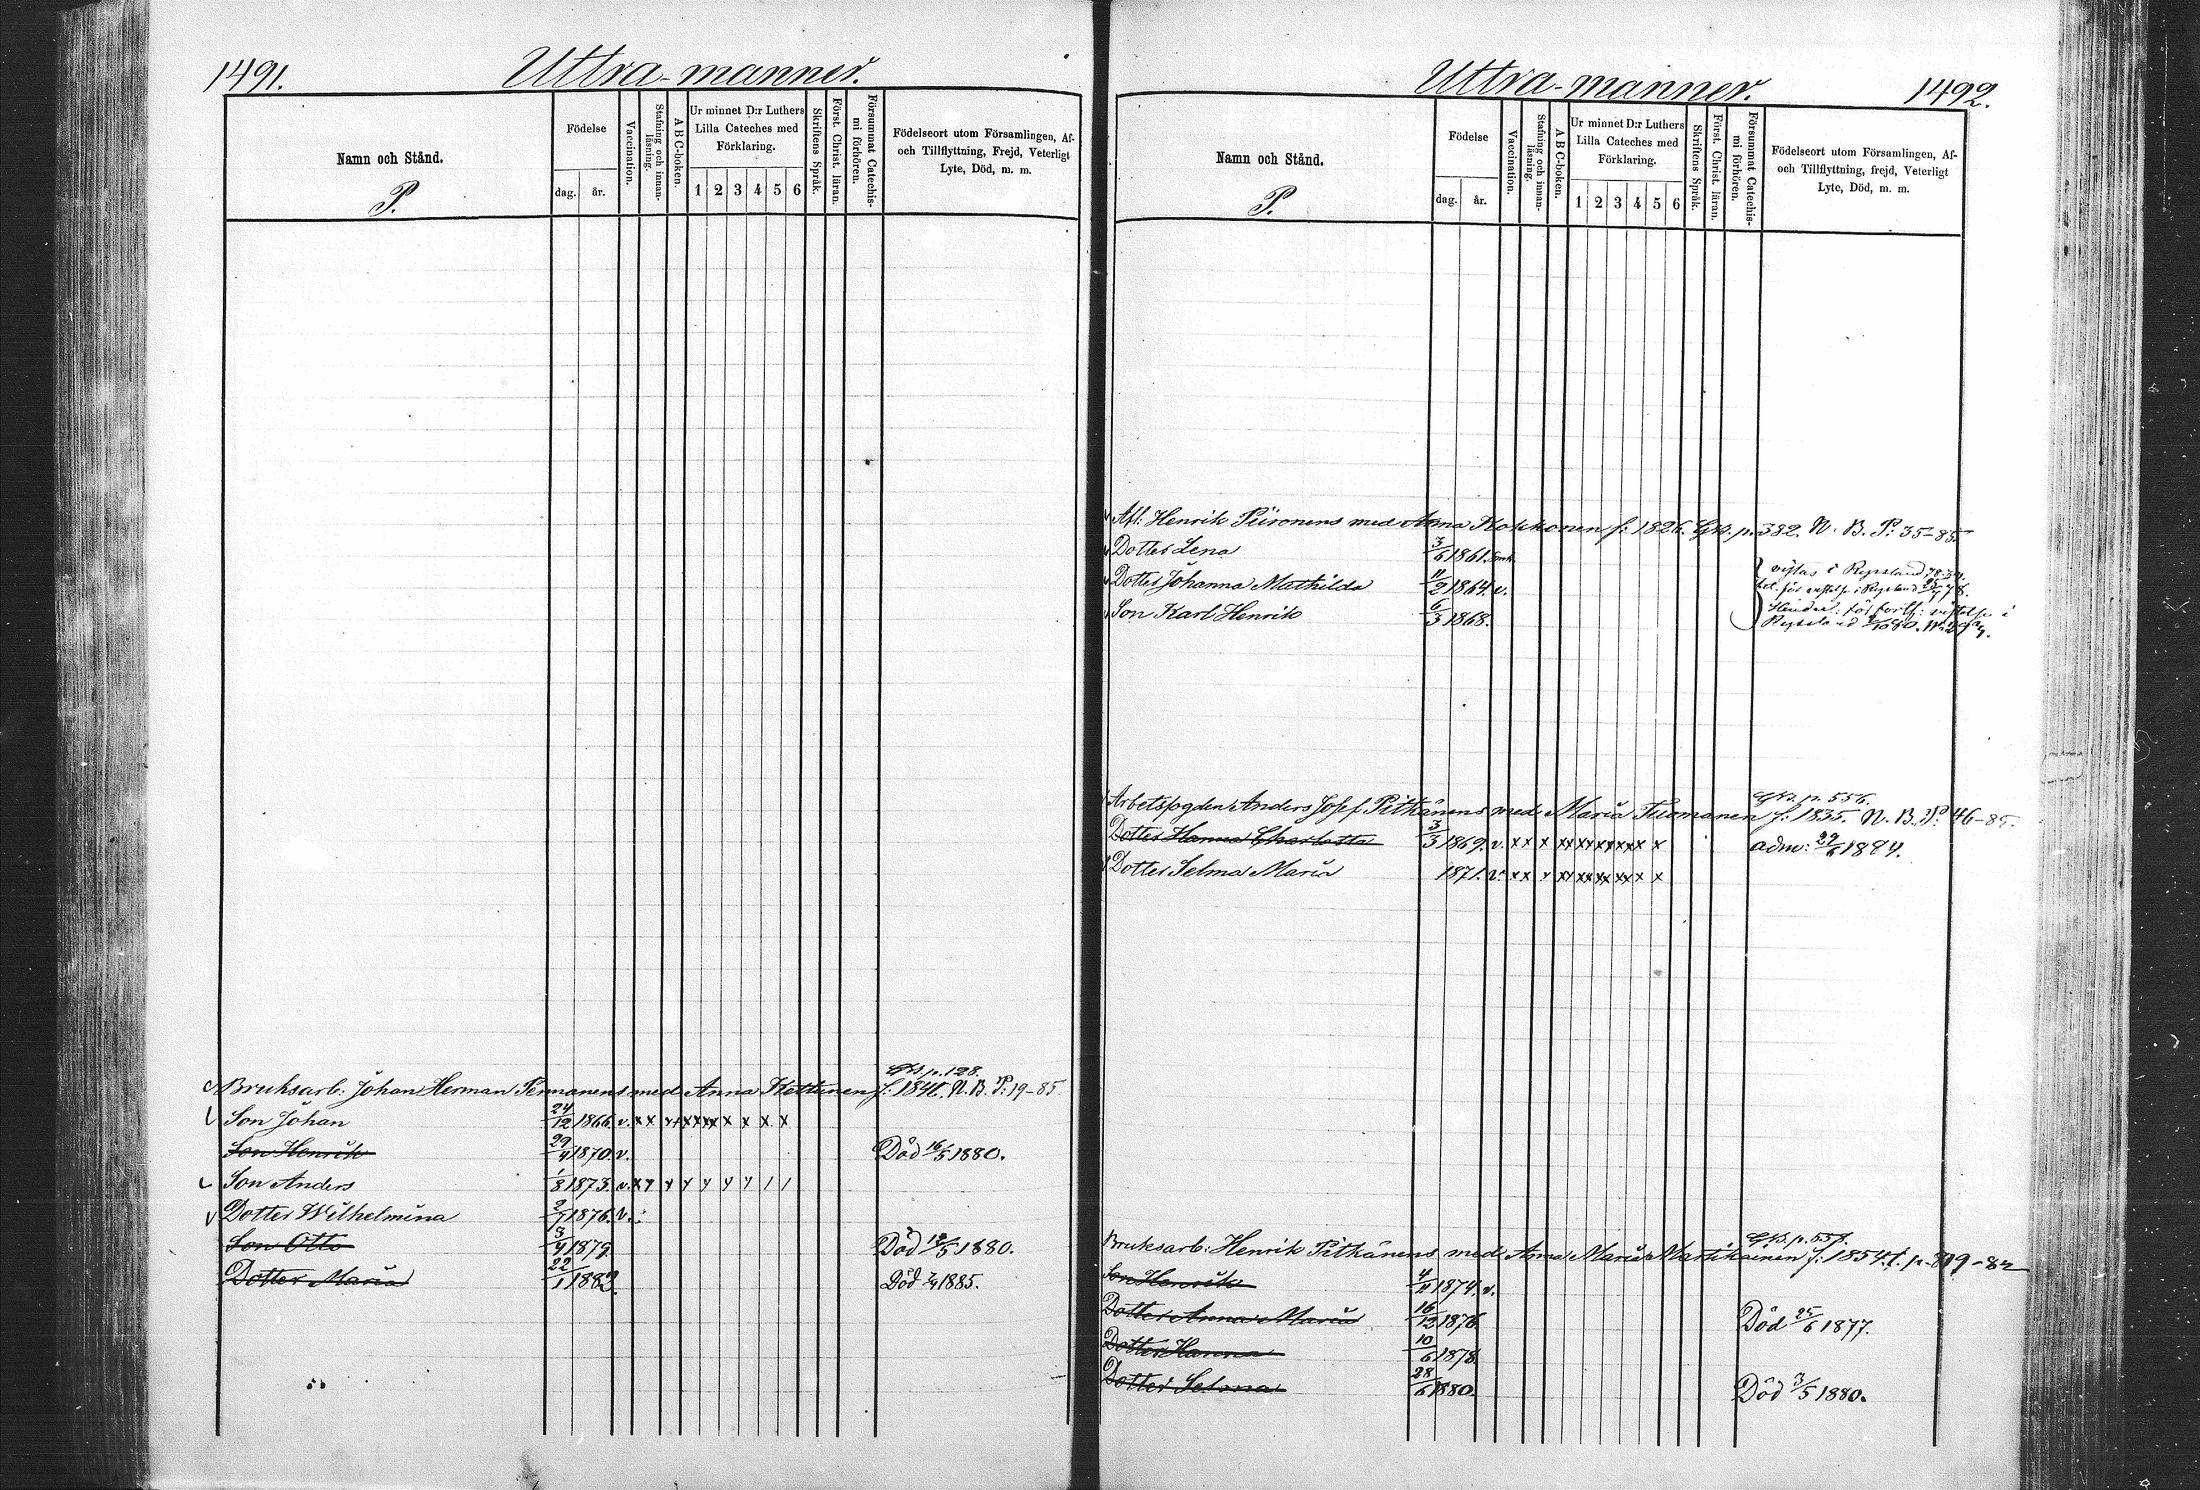 1491.
Uttra-manner.
Namn och Stånd.
P.
Födelse
dag.
år.
Vaccination.
Stafning och innanläsning.
A B C-boken.
Ur minnet D:r Luthers
Lilla Cateches med
Förklaring.
1 2 3 4 5 6
Skriftens Språk.
Först. Christ. läran.
Försummat Catechismi förhören.
Födelseort utom Församlingen, Af-
och Tillflyttning, Frejd, Veterligt
Lyte, Död, m. m.
p. 128.
Bruksarb: Johan Herman Pennanens med Anna Kettunen f: N. B. P: 19-85
Son Johan 24/12 1866. v. x x x x x x x x x x x
Son Henrik 29/4 1870. v. Död 16/5 1880.
Son Anders 1/8 1873. v. x
Dotter Wilhelmina 2/7 1876. v.
Son Otto 3/4 1879. Död 18/5 1880.
Dotter Maria 22/1 1883. Död 1885.
1492.
Uttra-manner.
Namn och Stånd.
P.
Födelse
dag.
år.
Vaccination.
Stafning och innanläsning.
A B C-boken.
Ur minnet D:r Luthers
Lilla Cateches med
Förklaring.
1 2 3 4 5 6
Skriftens Språk.
Först. Christ. läran.
Försummat Catechismi förhören.
Födelseort utom Församlingen, Af-
och Tillflyttning, frejd, Veterligt
Lyte, Död, m. m.
Afl: Henrik Piironens med Anna Kokkonen f: 1826. p. 382. N. B. P: 35-85.
Dotter Lena 3/6 1861.
Dotter Johanna Mathilda 11/2 1864. v.
Son Karl Henrik 6/3 1868.
vistas i Ryssland
i Ryssland
i
Ryssland
p. 556.
Arbetsfogden Anders Josef Pitkänens med Maria Tuomanen f: 1835. N. B. P: 46-85.
Dotter Hanna Charlotta 3/3 1869. v. x x x xx xx xx xx x x adm: 29/6 1884.
Dotter Selma Maria 1871. v. x x x xx xx xx xx x x
p. 557.
Bruksarb: Henrik Pitkänens med Anna Maria Martikainen f: 1854.
Son Henrik 4/11 1874. v.
Dotter Anna Maria 16/12 1876. Död 25/6 1877.
Dotter Hanna 10/6 1878.
Dotter Selma 28/ 1880. Död 3/5 1880.